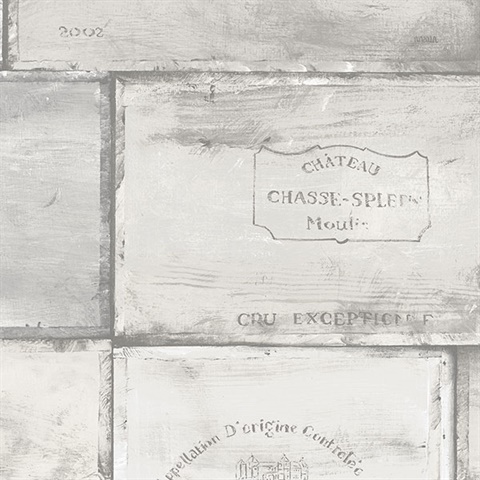 2002
CHÂTEAU
CHASSE-SPLEEN
Moulis
CRU EXCEPTIONNE
Appellation D'origine Contrôlée